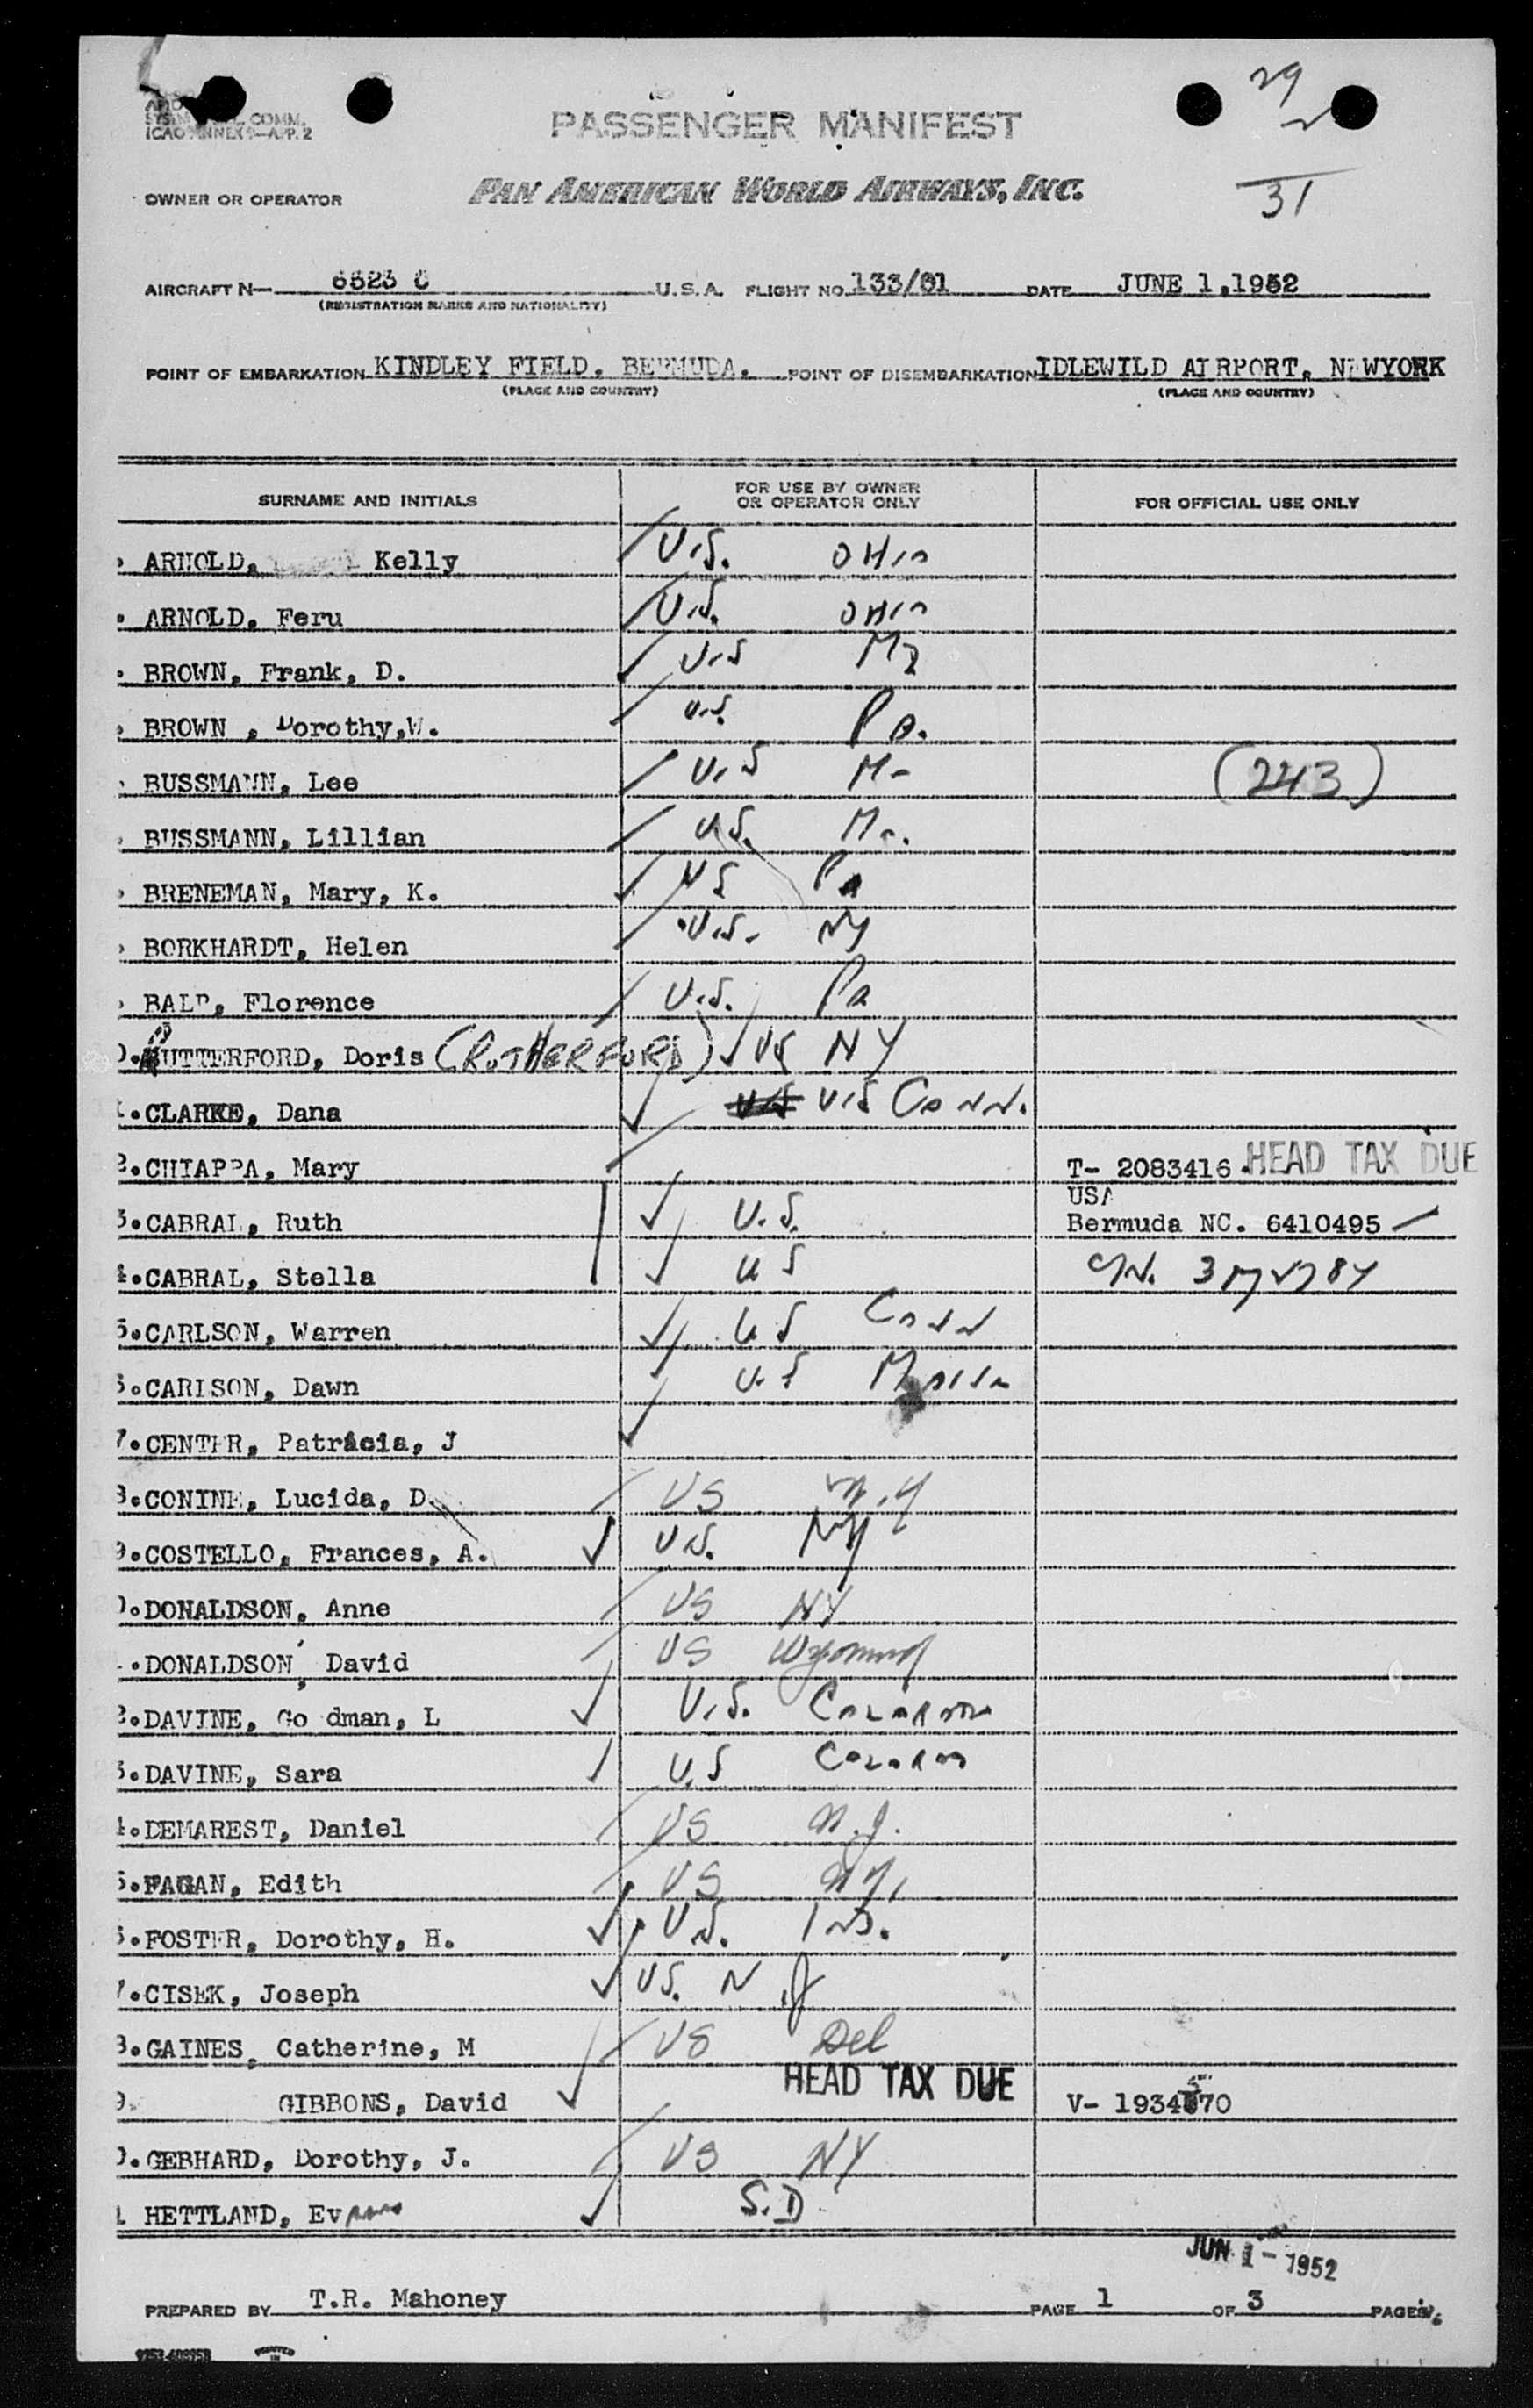 29
2
31
COMM.
ICAO ANNEX 9—APP. 2
PASSENGER MANIFEST
OWNER OR OPERATOR PAN AMERICAN WORLD AIRWAYS, INC.
AIRCRAFT N— 6523 C U.S.A. FLIGHT NO. 133/31 DATE JUNE 1,1952
(REGISTRATION MARKS AND NATIONALITY)
POINT OF EMBARKATION KINDLEY FIELD, BERMUDA. POINT OF DISEMBARKATION IDLEWILD AIRPORT, NEWYORK
(PLACE AND COUNTRY) (PLACE AND COUNTRY)
SURNAME AND INITIALS FOR USE BY OWNER OR OPERATOR ONLY FOR OFFICIAL USE ONLY
ARNOLD, Kelly U.S. OHIO
ARNOLD, Feru U.S. OHIO
BROWN, Frank, D. U.S
BROWN , Dorothy,W. U.S. Pa.
BUSSMANN, Lee U.S Mo (243)
BUSSMANN, Lillian U.S. Mo.
BRENEMAN, Mary, K. US Pa
BORKHARDT, Helen U.S. NY
BALD, Florence U.S. Pa
RUTTERFORD, Doris (RUTHERFORD) US NY
CLARKE, Dana US U.S Conn.
2.CHIAPPA, Mary T- 2083416 HEAD TAX DUE
USA
3.CABRAL, Ruth U.S. Bermuda NC. 6410495
4.CABRAL, Stella U S C/N.
5.CARLSON, Warren U S Conn
6.CARLSON, Dawn U.S Mass
7.CENTER, Patricia, J
8.CONINE, Lucida, D. US N.Y
9.COSTELLO, Frances, A. U.S. NY
0.DONALDSON, Anne US NY
.DONALDSON, David US Wyoming
2.DAVINE, Goodman, L U.S. Colorado
3.DAVINE, Sara U.S Colorado
4.DEMAREST, Daniel US N.J.
5.FAGAN, Edith US N.Y.
6.FOSTER, Dorothy, H. U.S. IND.
7.CISEK, Joseph US. N.J
8.GAINES, Catherine, M US Del
9. GIBBONS, David HEAD TAX DUE V- 1934570
0.GEBHARD, Dorothy, J. US NY
1 HETTLAND, Ev S.D
JUN 1 - 1952
PREPARED BY T.R. Mahoney PAGE 1 OF 3 PAGES